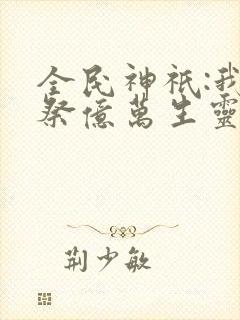 全民神祇:我
祭億萬生靈
荆少敏